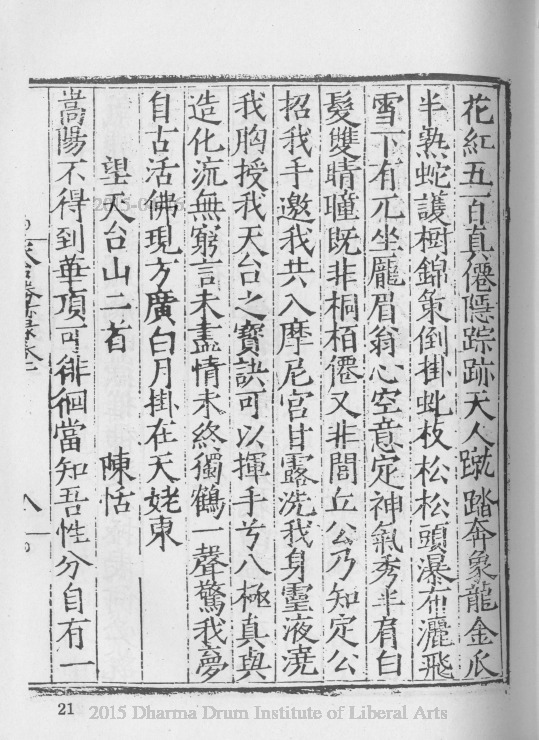 花紅五百真僊隱踪跡天人蹴踏奔象龍金爪
半熟蛇護樹錦策倒掛虬枝松松頭瀑布灑飛
雪下有兀坐龐眉翁心空意定神氣秀半肩白
髮雙睛瞳既非桐栢僊又非閭丘公乃知定公
招我手邀我共入摩尼宮甘露洗我身靈液澆
我胸授我天台之寶訣可以揮手兮八極真與
造化流無窮言未盡情未終獨鶴一聲驚我夢
自古活佛現方廣白月掛在天姥東
望天台山二首 陳恬
嵩陽不得到華頂可徘徊當知吾性分自有一
天台勝蹟錄卷一
八
21
2015 Dharma Drum Institute of Liberal Arts